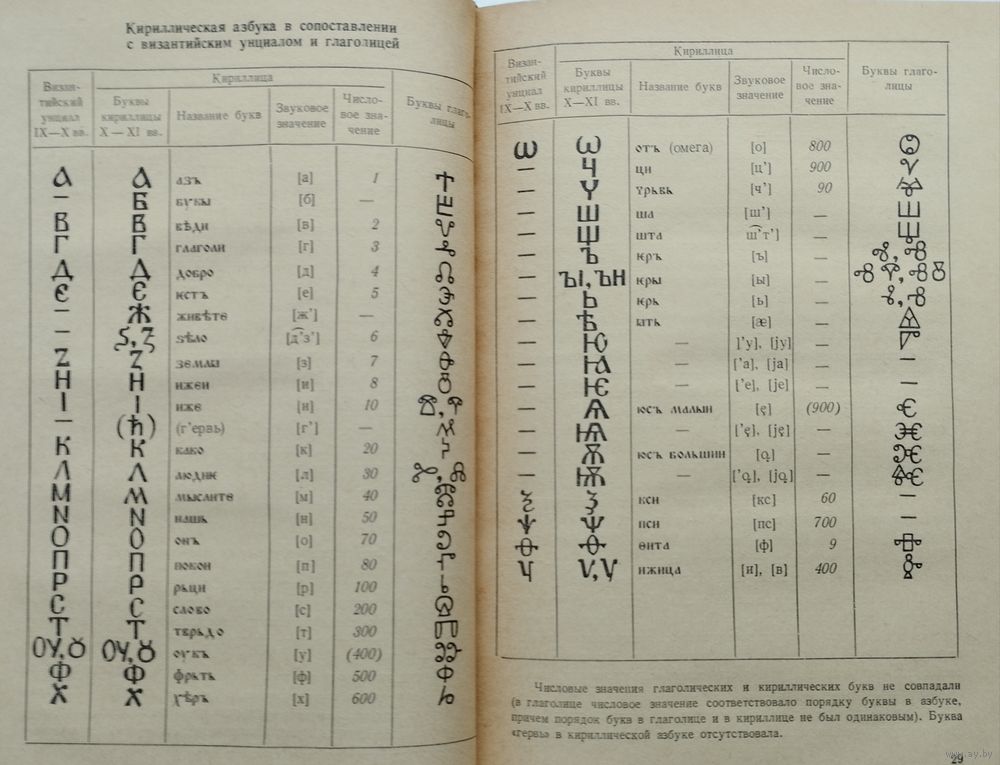 Кириллическая азбука в сопоставлении
с византийским унциалом и глаголицей
Визан-
тийский
унциал
IX—X вв.
Кириллица
Буквы
кириллицы
X—XI вв.
Название букв
Звуковое
значение
Число-
вое зна-
чение
Буквы глаго-
лицы
А А азъ [а] 1 Ⰰ
— Б букы [б] — Ⰱ
В В вѣди [в] 2 Ⰲ
Г Г глаголи [г] 3 Ⰳ
Д Д добро [д] 4 Ⰴ
Є Є ѥстъ [е] 5 Ⰵ
— Ж живѣте [ж’] — Ⰶ
— Ѕ, Ꙁ ѕѣло [д͡’з’] 6 Ⰷ
Z Z земля [з] 7 Ⰸ
Н Н ижеи [и] 8 Ⰹ
І І иже [и] 10 Ⰺ, Ⰹ
— (ћ) (г’ервь) [г’] — Ⰼ
К К како [к] 20 Ⰽ
Л Л людиѥ [л] 30 Ⰾ
М М мыслите [м] 40 Ⰿ
N N нашь [н] 50 Ⱀ
О О онъ [о] 70 Ⱁ
П П покои [п] 80 Ⱂ
Р Р рьци [р] 100 Ⱃ
С С слово [с] 200 Ⱄ
Т Т тврьдо [т] 300 Ⱅ
ОУ, Ȣ ОУ, Ȣ оукъ [у] (400) Ⱆ
Ф Ф фрьтъ [ф] 500 Ⱇ
Х Х хѣръ [х] 600 Ⱈ
Визан-
тийский
унциал
IX—X вв.
Кириллица
Буквы
кириллицы
X—XI вв.
Название букв
Звуковое
значение
Число-
вое зна-
чение
Буквы глаго-
лицы
Ѡ Ѡ отъ (омега) [о] 800 Ⱉ
— Ц ци [ц’] 900 Ⱌ
— Ч чрьвь [ч’] 90 Ⱍ
— Ш ша [ш’] — Ⱎ
— Щ шта [ш͡’т’] — Ⱋ
— Ъ ѥръ [ъ] —
— ЪІ, ЪН ѥры [ы] —
— Ь ѥрь [ь] —
— Ѣ ять [æ] — Ⱑ
— Ю — [’у], [jу] — Ⱓ
— Ꙗ — [’а], [jа] — —
— Ѥ — [’е], [jе] — —
— Ѧ юсъ малыи [ę] (900) Ⱔ
— Ѩ — [’ę], [ję] — Ⱗ
— Ѫ юсъ большии [ǫ] — Ⱘ
— Ѭ — [’ǫ], [jǫ] — Ⱙ
Ѯ Ѯ кси [кс] 60 —
Ѱ Ѱ пси [пс] 700 —
Ѳ Ѳ ѳита [ф] 9 Ⱚ
Ч Ѵ, Ү ижица [и], [в] 400 Ⱛ
Числовые значения глаголических и кириллических букв не совпадали
(в глаголице числовое значение соответствовало порядку буквы в азбуке,
причем порядок букв в глаголице и в кириллице не был одинаковым). Буква
«гервь» в кириллической азбуке отсутствовала.
29
www.ay.by